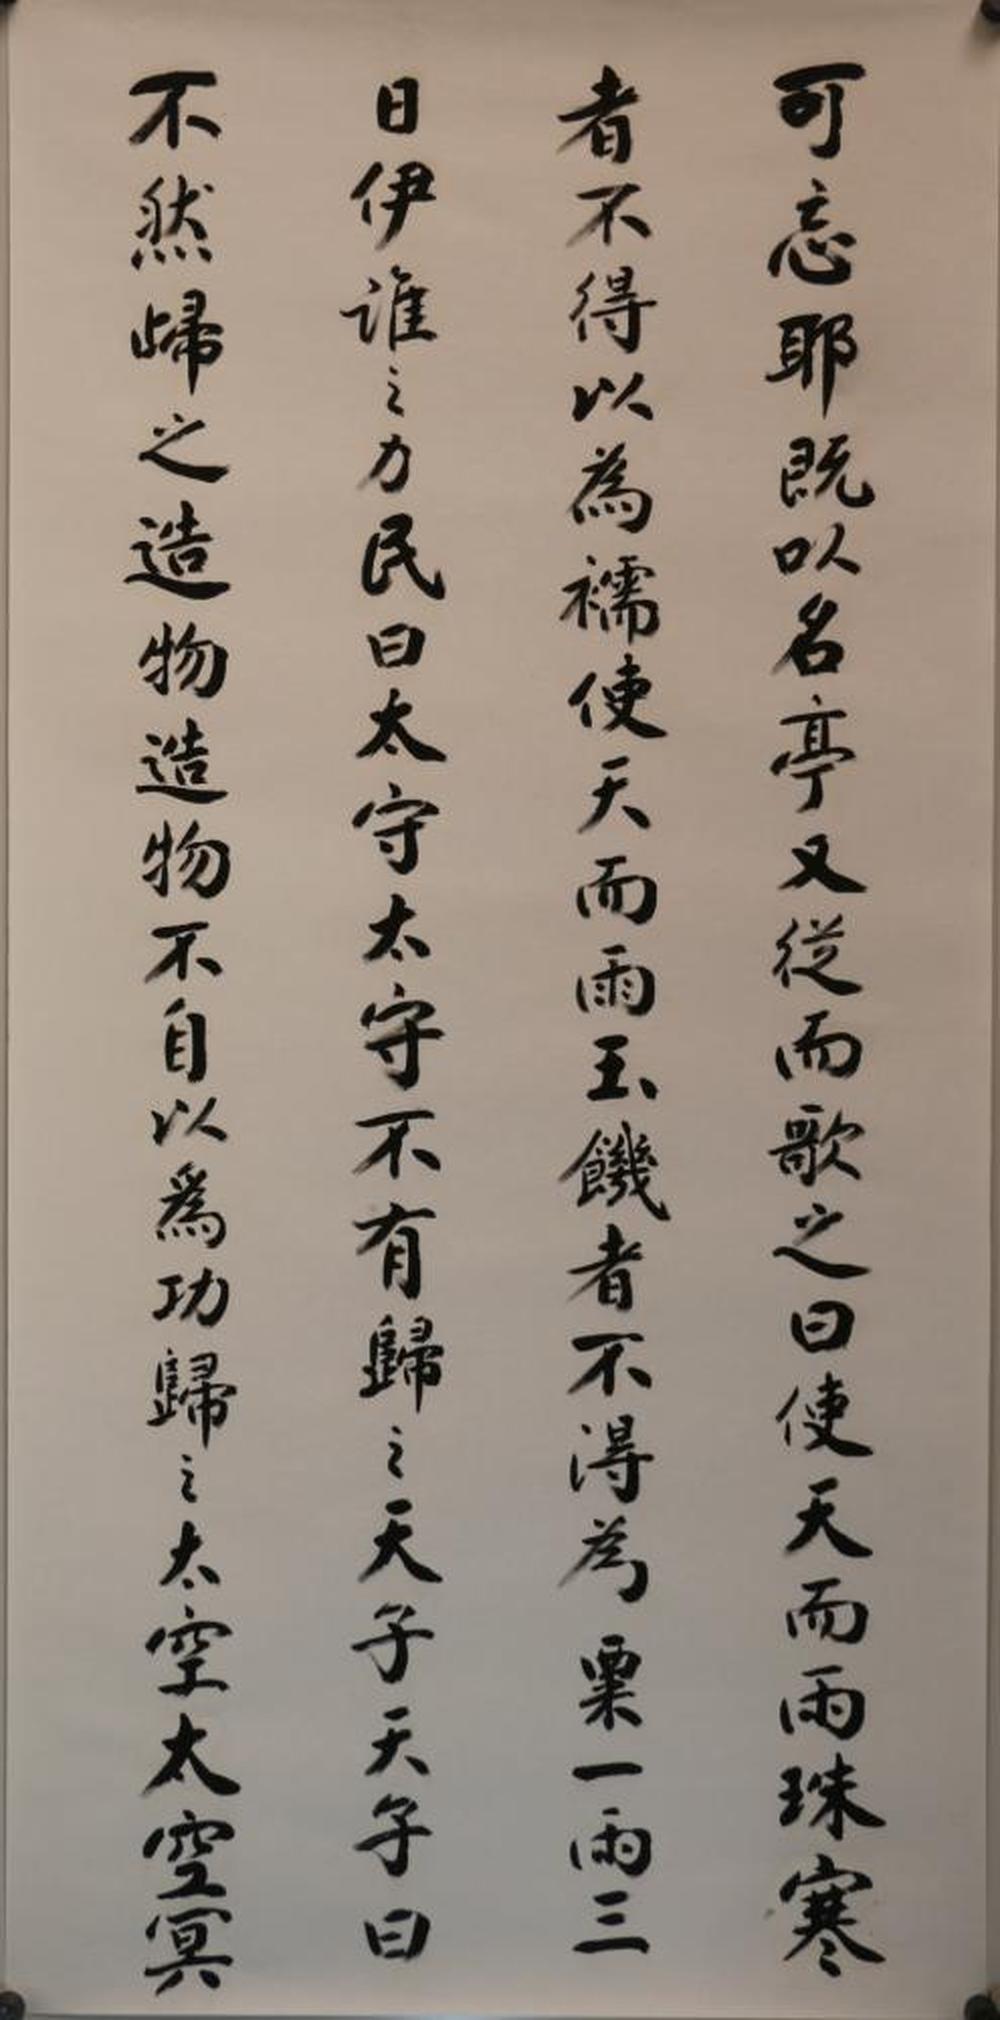 可忘耶既以名亭又從而歌之曰使天而雨珠寒
者不得以為襦使天而雨玉饑者不得為粟一雨三
日伊誰之力民曰太守太守不有歸之天子天子曰
不然歸之造物造物不自以為功歸之太空太空冥